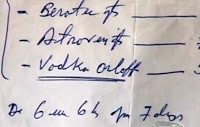 - Berotec
- Atrovent
- Vodka Orloff
De 6 em 6 h por 7 dias